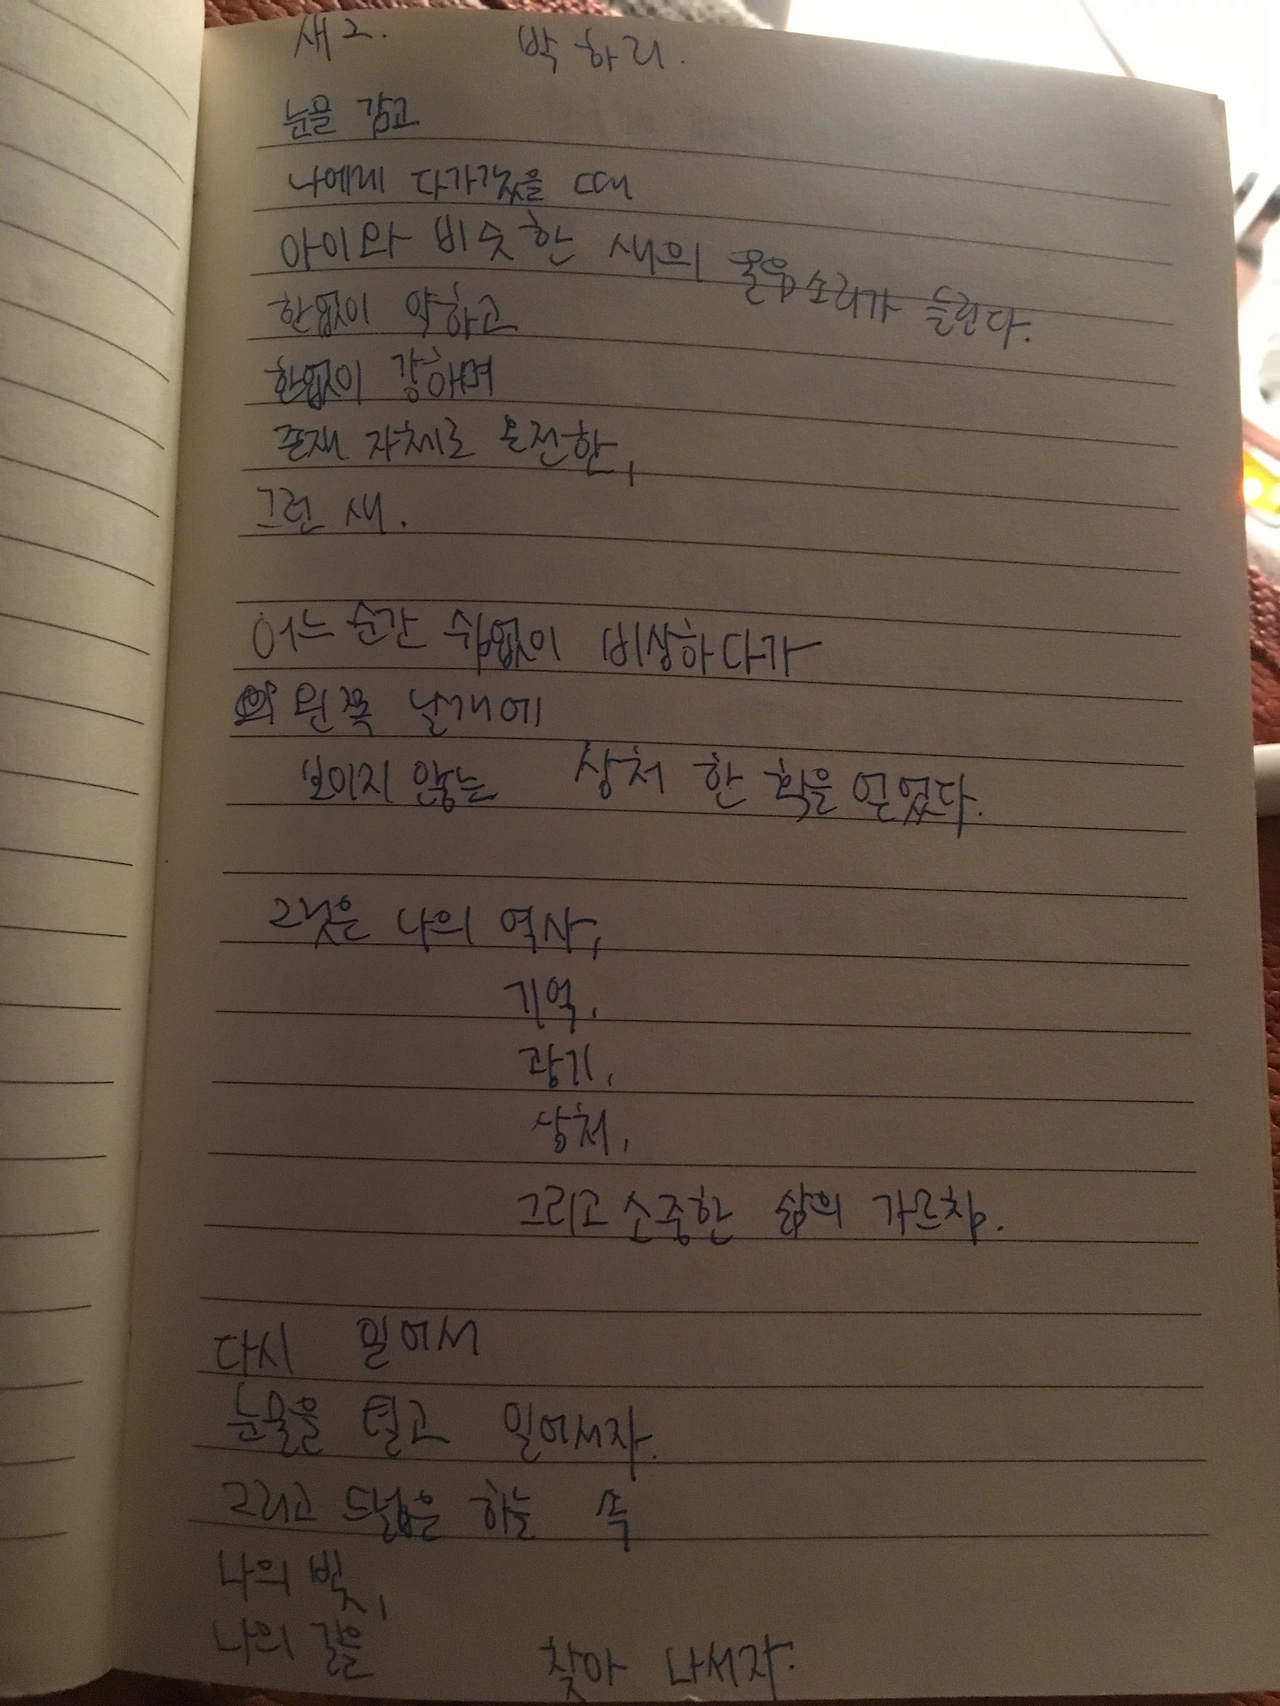 새 2. 박하리.
눈을 감고
나에게 다가갔을 때
아이와 비슷한 새의 울음소리가 들린다.
한없이 약하고
한없이 강하며
존재 자체로 온전한,
그런 새.
어느 순간 쉼없이 비상하다가
왼쪽 날개에
보이지 않는 상처 한 획을 얻었다.
그것은 나의 역사,
기억,
광기,
상처,
그리고 소중한 삶의 가르침.
다시 일어서
눈물을 털고 일어서자.
그리고 드넓은 하늘 속
나의 빛,
나의 길을 찾아 나서자.